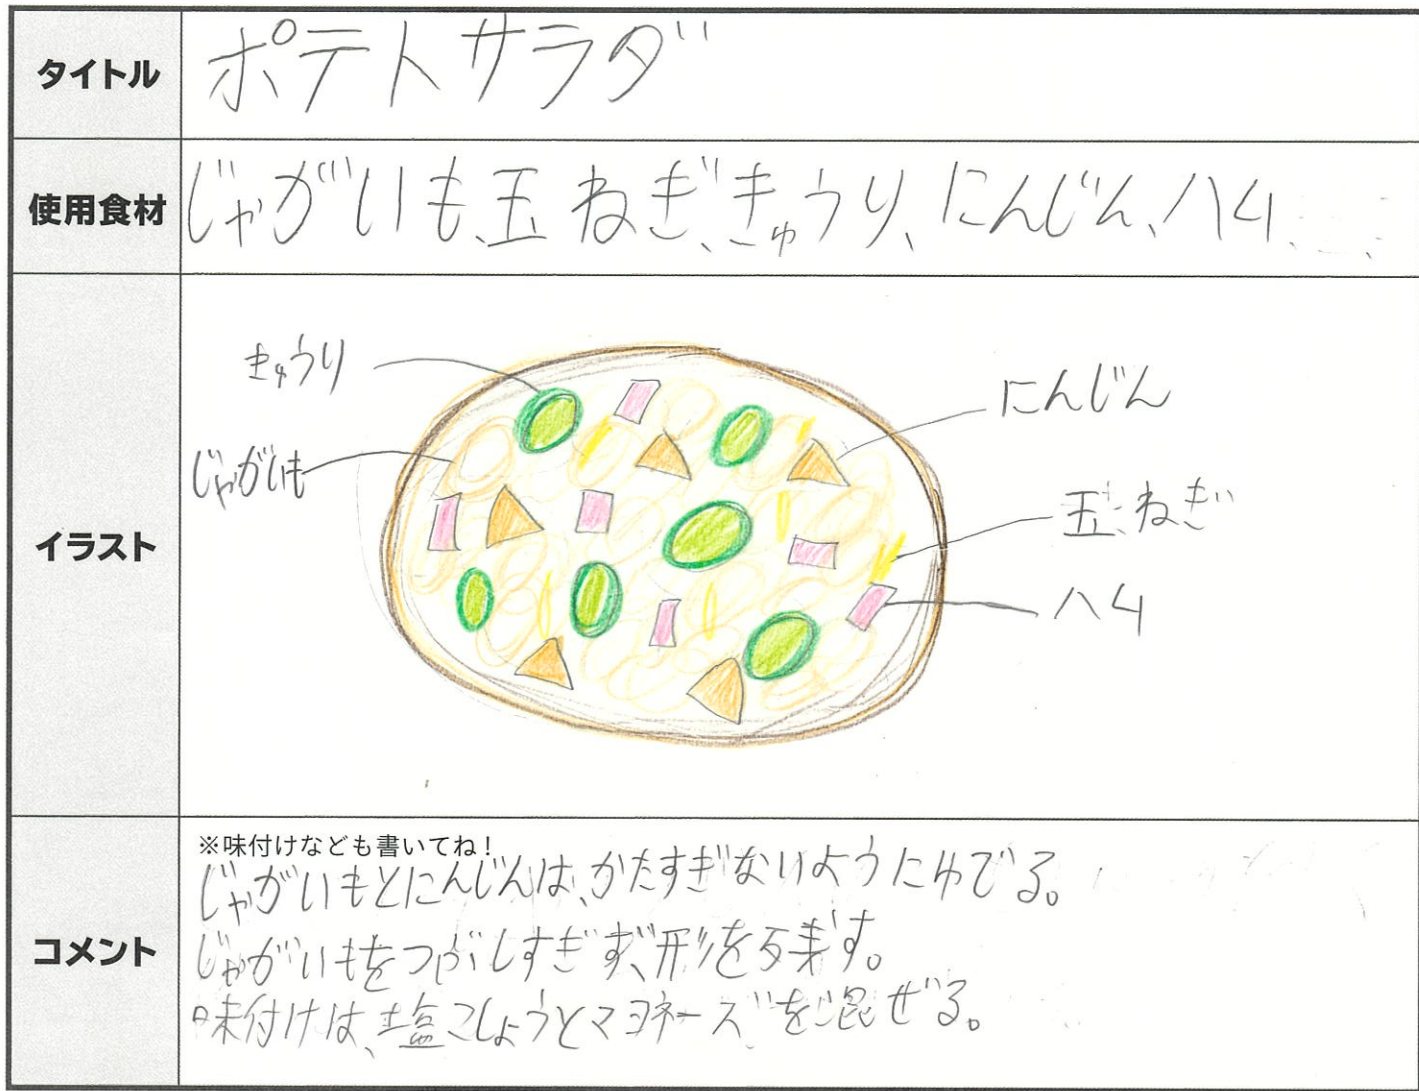 タイトル
ポテトサラダ
使用食材
じゃがいも、玉ねぎ、きゅうり、にんじん、ハム
イラスト
きゅうり
にんじん
じゃがいも
玉ねぎ
ハム
コメント
※味付けなども書いてね!
じゃがいもとにんじんは、かたすぎないようにゆでる。
じゃがいもをつぶしすぎず、形を残す。
味付けは、塩こしょうとマヨネーズを混ぜる。